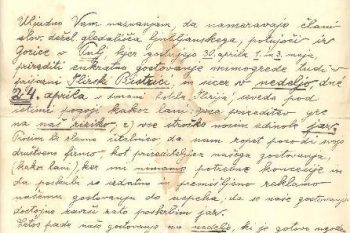 Uljudno Vam naznanjam, da nameravajo člani
slov. dežel. gledališča ljubljanskega, potujoči iz
Gorice v Pulj, kjer gostujejo 30. aprila, 1. in 3. maja,
prirediti enkratno gostovanje mimogrede tudi v
Ilirski Bistrici, in sicer v nedeljo, dne
24. aprila v dvorani Hotela "Ilirija", seveda pod
istimi pogoji kakor lani: gre prireditev
na naš riziko, z vse stroške nosim edinole jaz.
Prosim le slavno čitalnico da nam zopet posodi svojo
društveno firmo, kot prirediteljica našega gostovanja,
(kakor lani), ker mi nimamo potrebne koncesije in
da poskuša se izdatno in premišljeno reklamo
našemu gostovanju do uspeha, da se naše gostovanje
dostojno za to poskrbim jaz.
Letos pade naše gostovanje na nedeljo, ki je gotovo ugodna